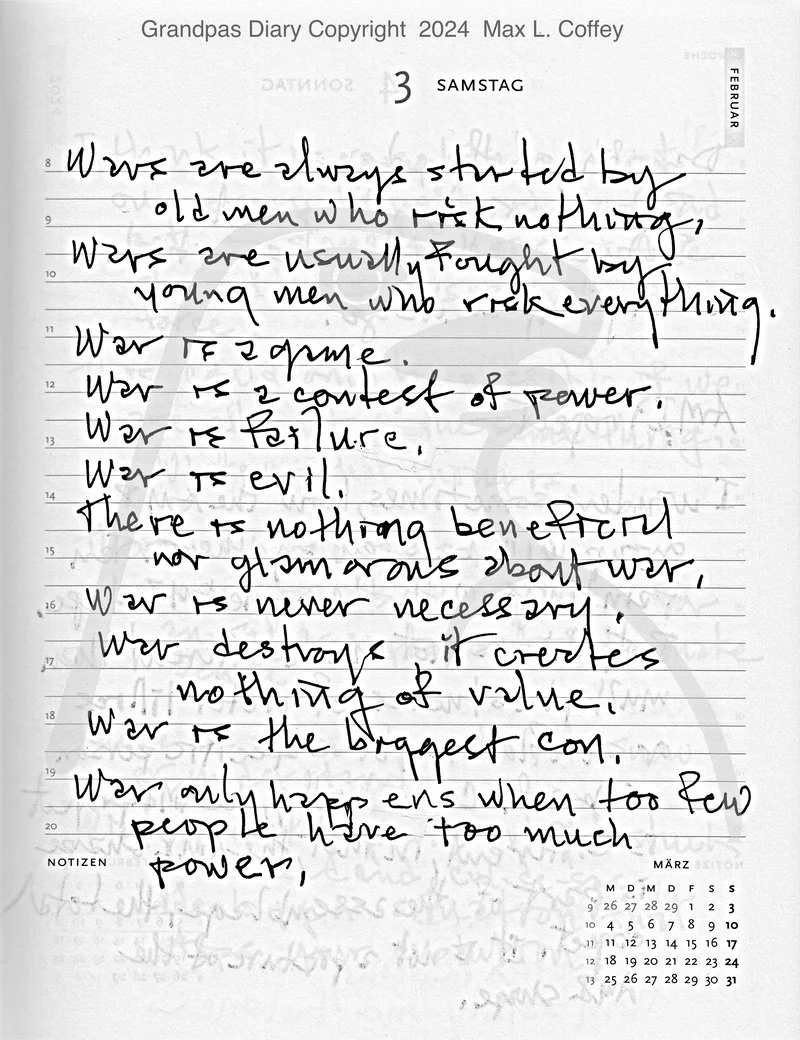 Grandpas Diary Copyright 2024 Max L. Coffey
3 SAMSTAG
FEBRUAR
8 Wars are always started by
old men who risk nothing,
9
Wars are usually fought by
10
young men who risk everything.
11 War is a game.
12 War is a contest of power.
War is failure.
13
War is evil.
14
There is nothing beneficial
15
nor glamorous about war,
16 War is never necessary.
War destroys it creates
17
nothing of value.
18
War is the biggest con.
19
War only happens when too few
20 people have too much
power,
NOTIZEN
MÄRZ
M D M D F S S
9 26 27 28 29 1 2 3
10 4 5 6 7 8 9 10
11 11 12 13 14 15 16 17
12 18 19 20 21 22 23 24
13 25 26 27 28 29 30 31